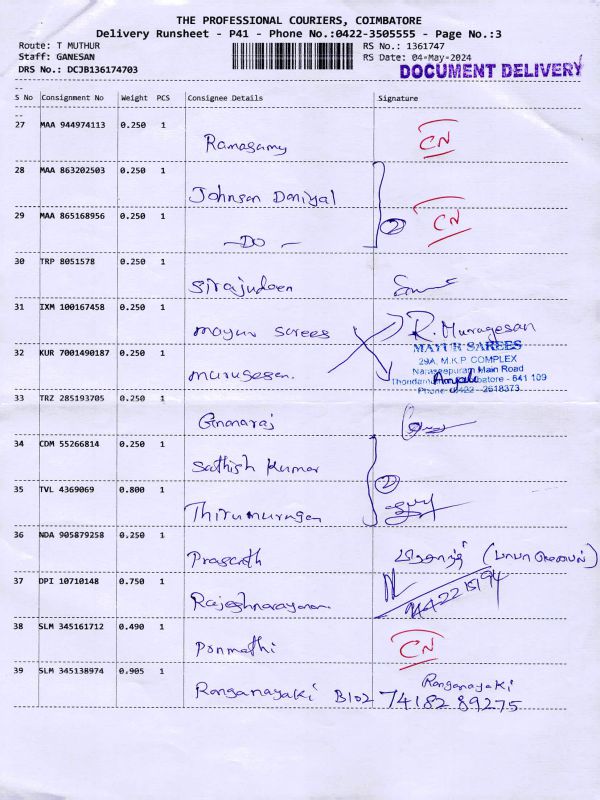 THE PROFESSIONAL COURIERS, COIMBATORE
Delivery Runsheet - P41 - Phone No.:0422-3505555 - Page No.:3
Route: T MUTHUR RS No.: 1361747
Staff: GANESAN RS Date: 04-May-2024
DRS No.: DCJB136174703 DOCUMENT DELIVERY
--
S No Consignment No Weight PCS Consignee Details Signature
--
27 MAA 944974113 0.250 1
Ramasamy CN
28 MAA 863202503 0.250 1
Johnson Daniyal
29 MAA 865168956 0.250 1
-DO- 2 CN
30 TRP 8051578 0.250 1
Sirajudeen
31 IXM 100167458 0.250 1
mayur sarees R. Murugesan
32 KUR 7001490187 0.250 1
MAYUR SAREES
29A, M.K.P COMPLEX
Naraseepuram Main Road
murugesan. Anjali batore - 641 109
Phone: 0422 - 2618373
33 TRZ 285193705 0.250 1
Gnanaraj
34 CDM 55266814 0.250 1
Sathish Kumar
35 TVL 4369069 0.800 1 2
Thirumurugan
36 NDA 905879258 0.250 1
Prasanth
37 DPI 10710148 0.750 1
Rajeshnarayanan
38 SLM 345161712 0.490 1
Ponmathi CN
39 SLM 345138974 0.905 1
Ranganayaki
Ranganayaki B102 74182 89275